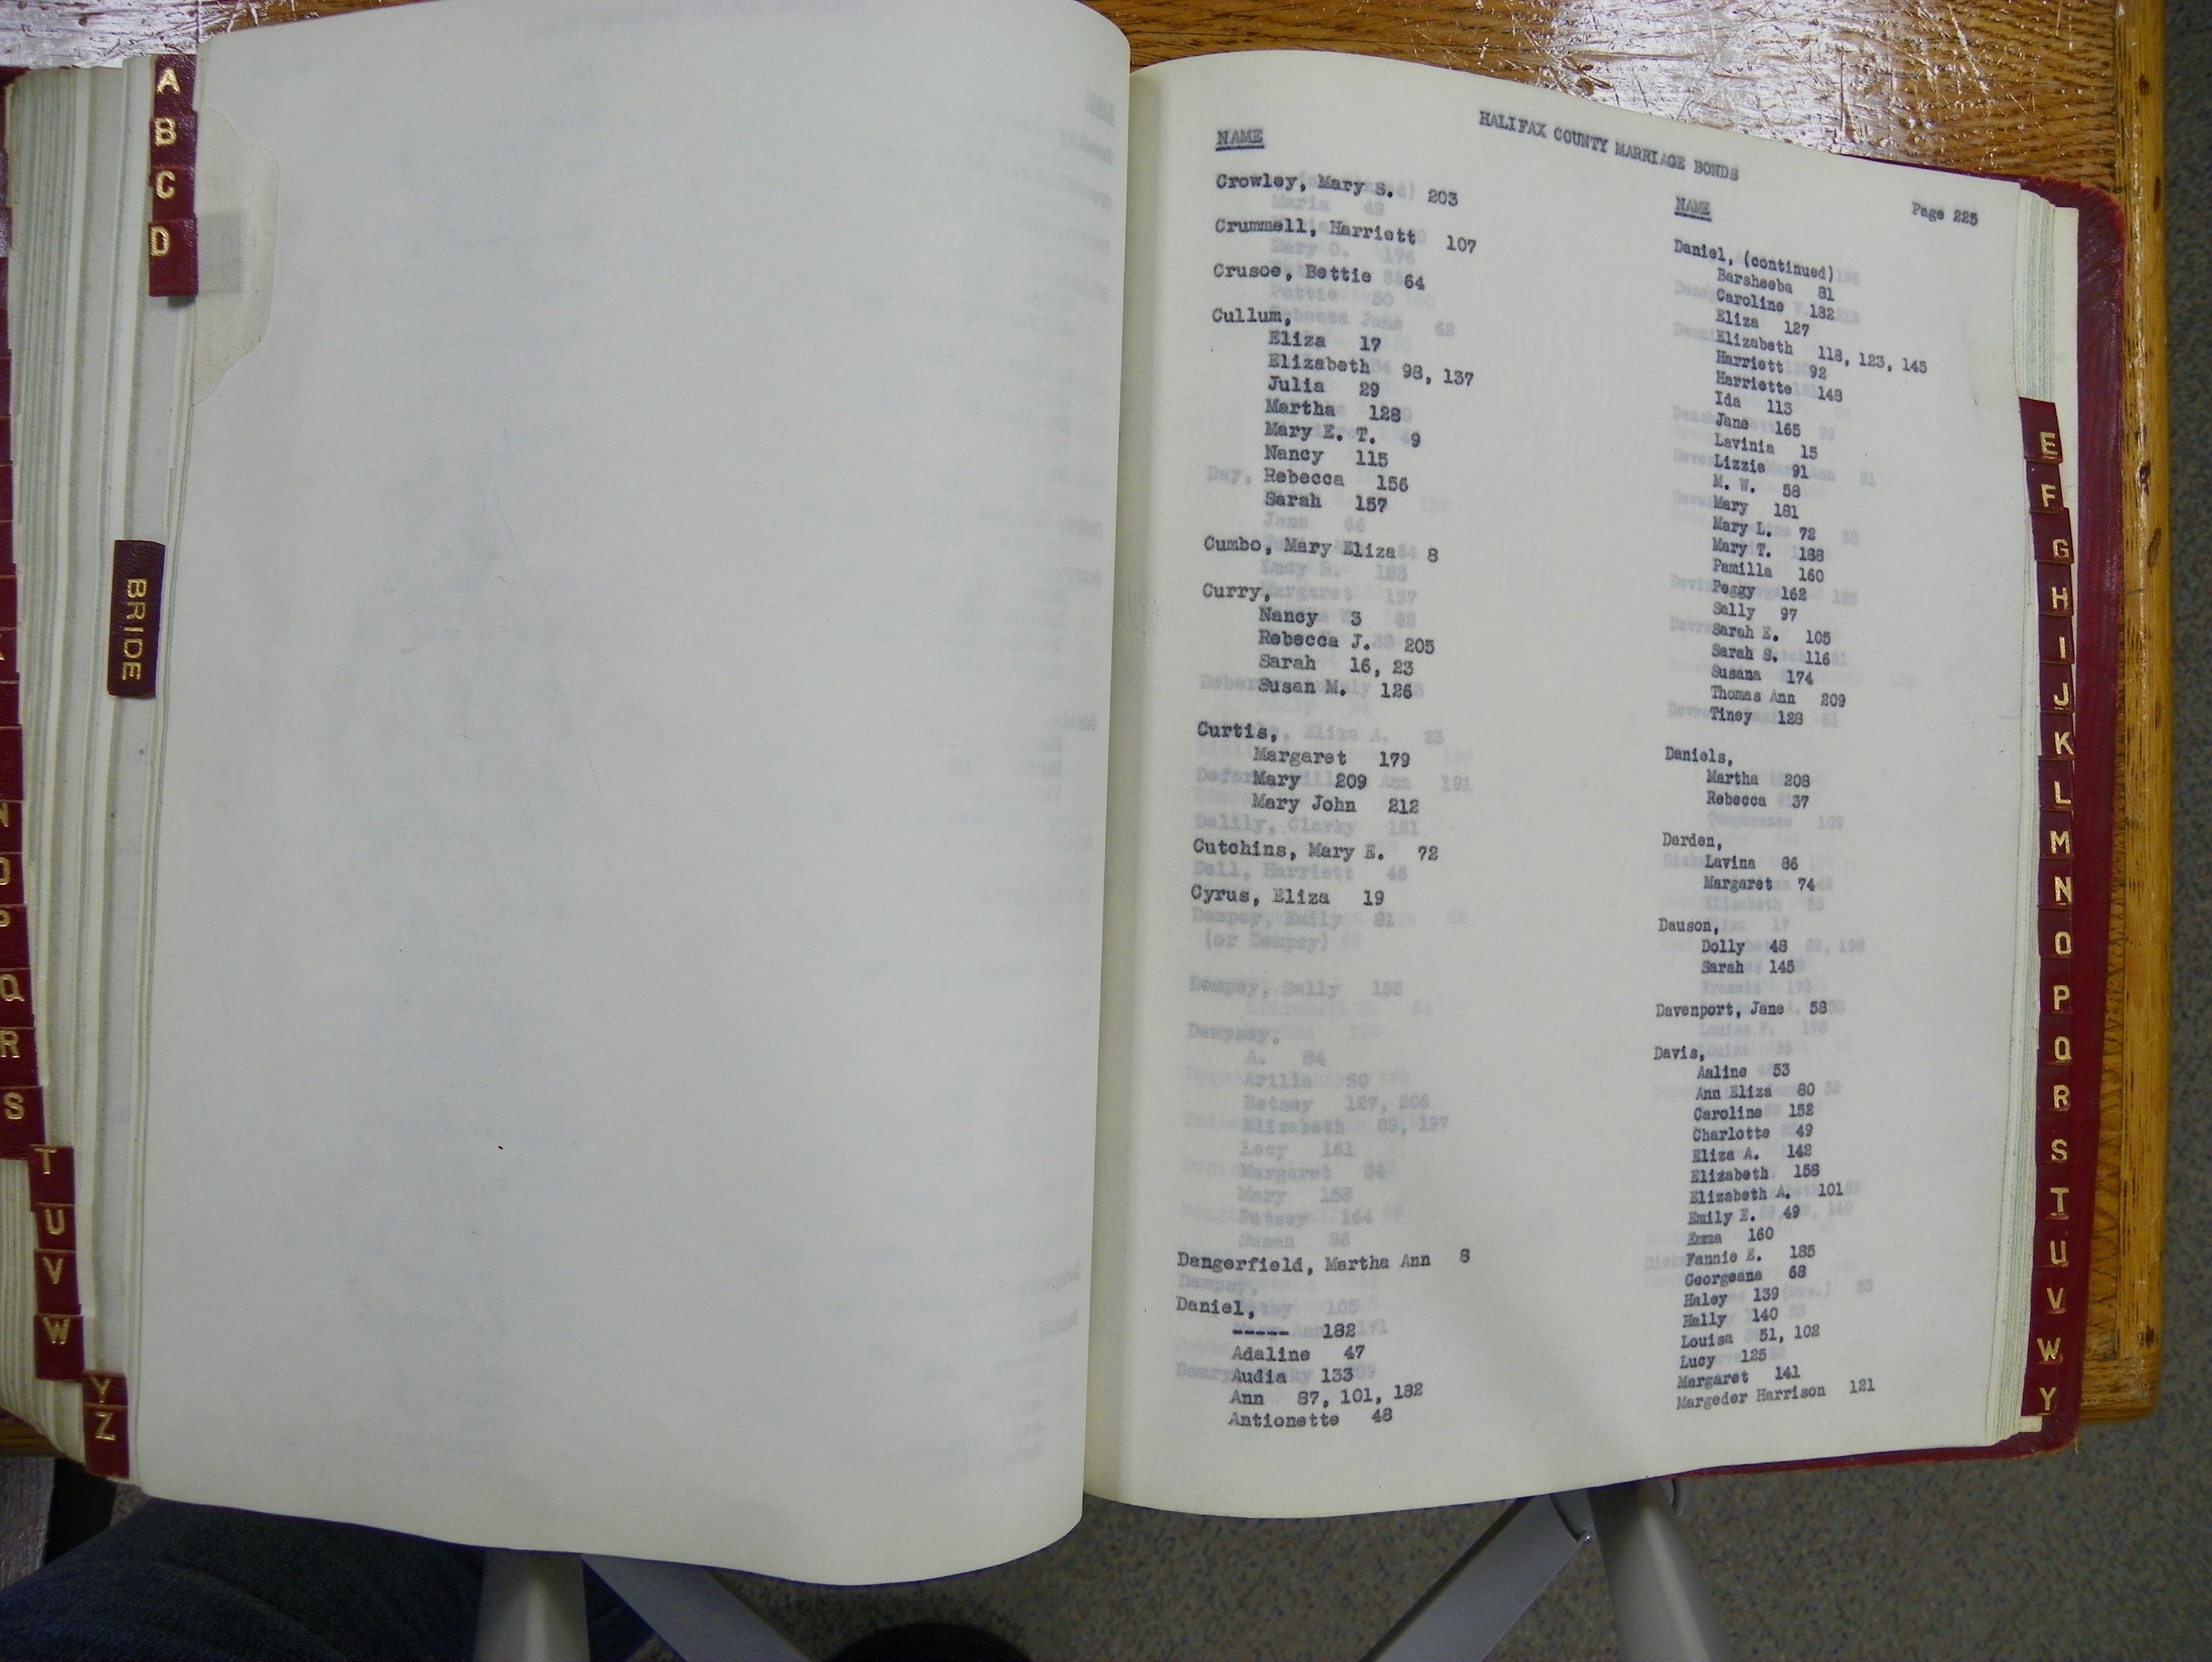 A
B
C
D
BRIDE
Q
R
S
T
U
V
W
Y
Z
HALIFAX COUNTY MARRIAGE BONDS
Page 225
NAME
Crowley, Mary S. 203
Crummell, Harriett 107
Crusoe, Bettie 64
Cullum,
Eliza 17
Elizabeth 98, 137
Julia 29
Martha 128
Mary E. T. 9
Nancy 115
Rebecca 156
Sarah 157
Cumbo, Mary Eliza 8
Curry,
Nancy 3
Rebecca J. 205
Sarah 16, 23
Susan M. 126
Curtis,
Margaret 179
Mary 209
Mary John 212
Cutchins, Mary E. 72
Cyrus, Eliza 19
Dangerfield, Martha Ann 8
Daniel,
----- 182
Adaline 47
Audia 133
Ann 87, 101, 182
Antionette 48
NAME
Daniel, (continued)
Barsheeba 81
Caroline 182
Eliza 127
Elizabeth 118, 123, 145
Harriett 92
Harriette 148
Ida 113
Jane 165
Lavinia 15
Lizzie 91
M. W. 58
Mary 181
Mary L. 72
Mary T. 188
Pamilla 160
Peggy 162
Sally 97
Sarah E. 105
Sarah S. 116
Susana 174
Thomas Ann 209
Tiney 128
Daniels,
Martha 208
Rebecca 37
Darden,
Lavina 86
Margaret 74
Dauson,
Dolly 48
Sarah 145
Davenport, Jane 58
Davis,
Aaline 53
Ann Eliza 80
Caroline 152
Charlotte 49
Eliza A. 142
Elizabeth 158
Elizabeth A. 101
Emily E. 49
Emma 160
Fannie E. 185
Georgeana 68
Haley 139
Hally 140
Louisa 51, 102
Lucy 125
Margaret 141
Margeder Harrison 121
E
F
G
H
I
J
K
L
M
N
O
P
Q
R
S
T
U
V
W
Y